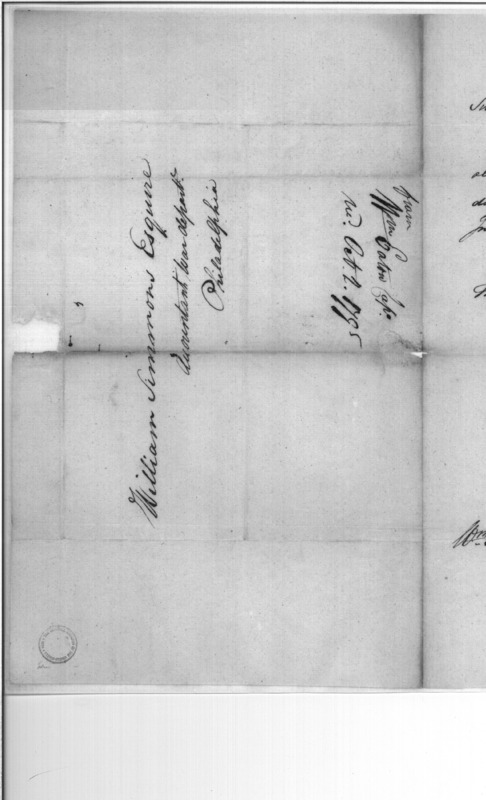 William Simmons Esquire
Accountant War depart.
Philadelphia
from
Wm Eaton Capt.
rec. Oct. 2. 1795